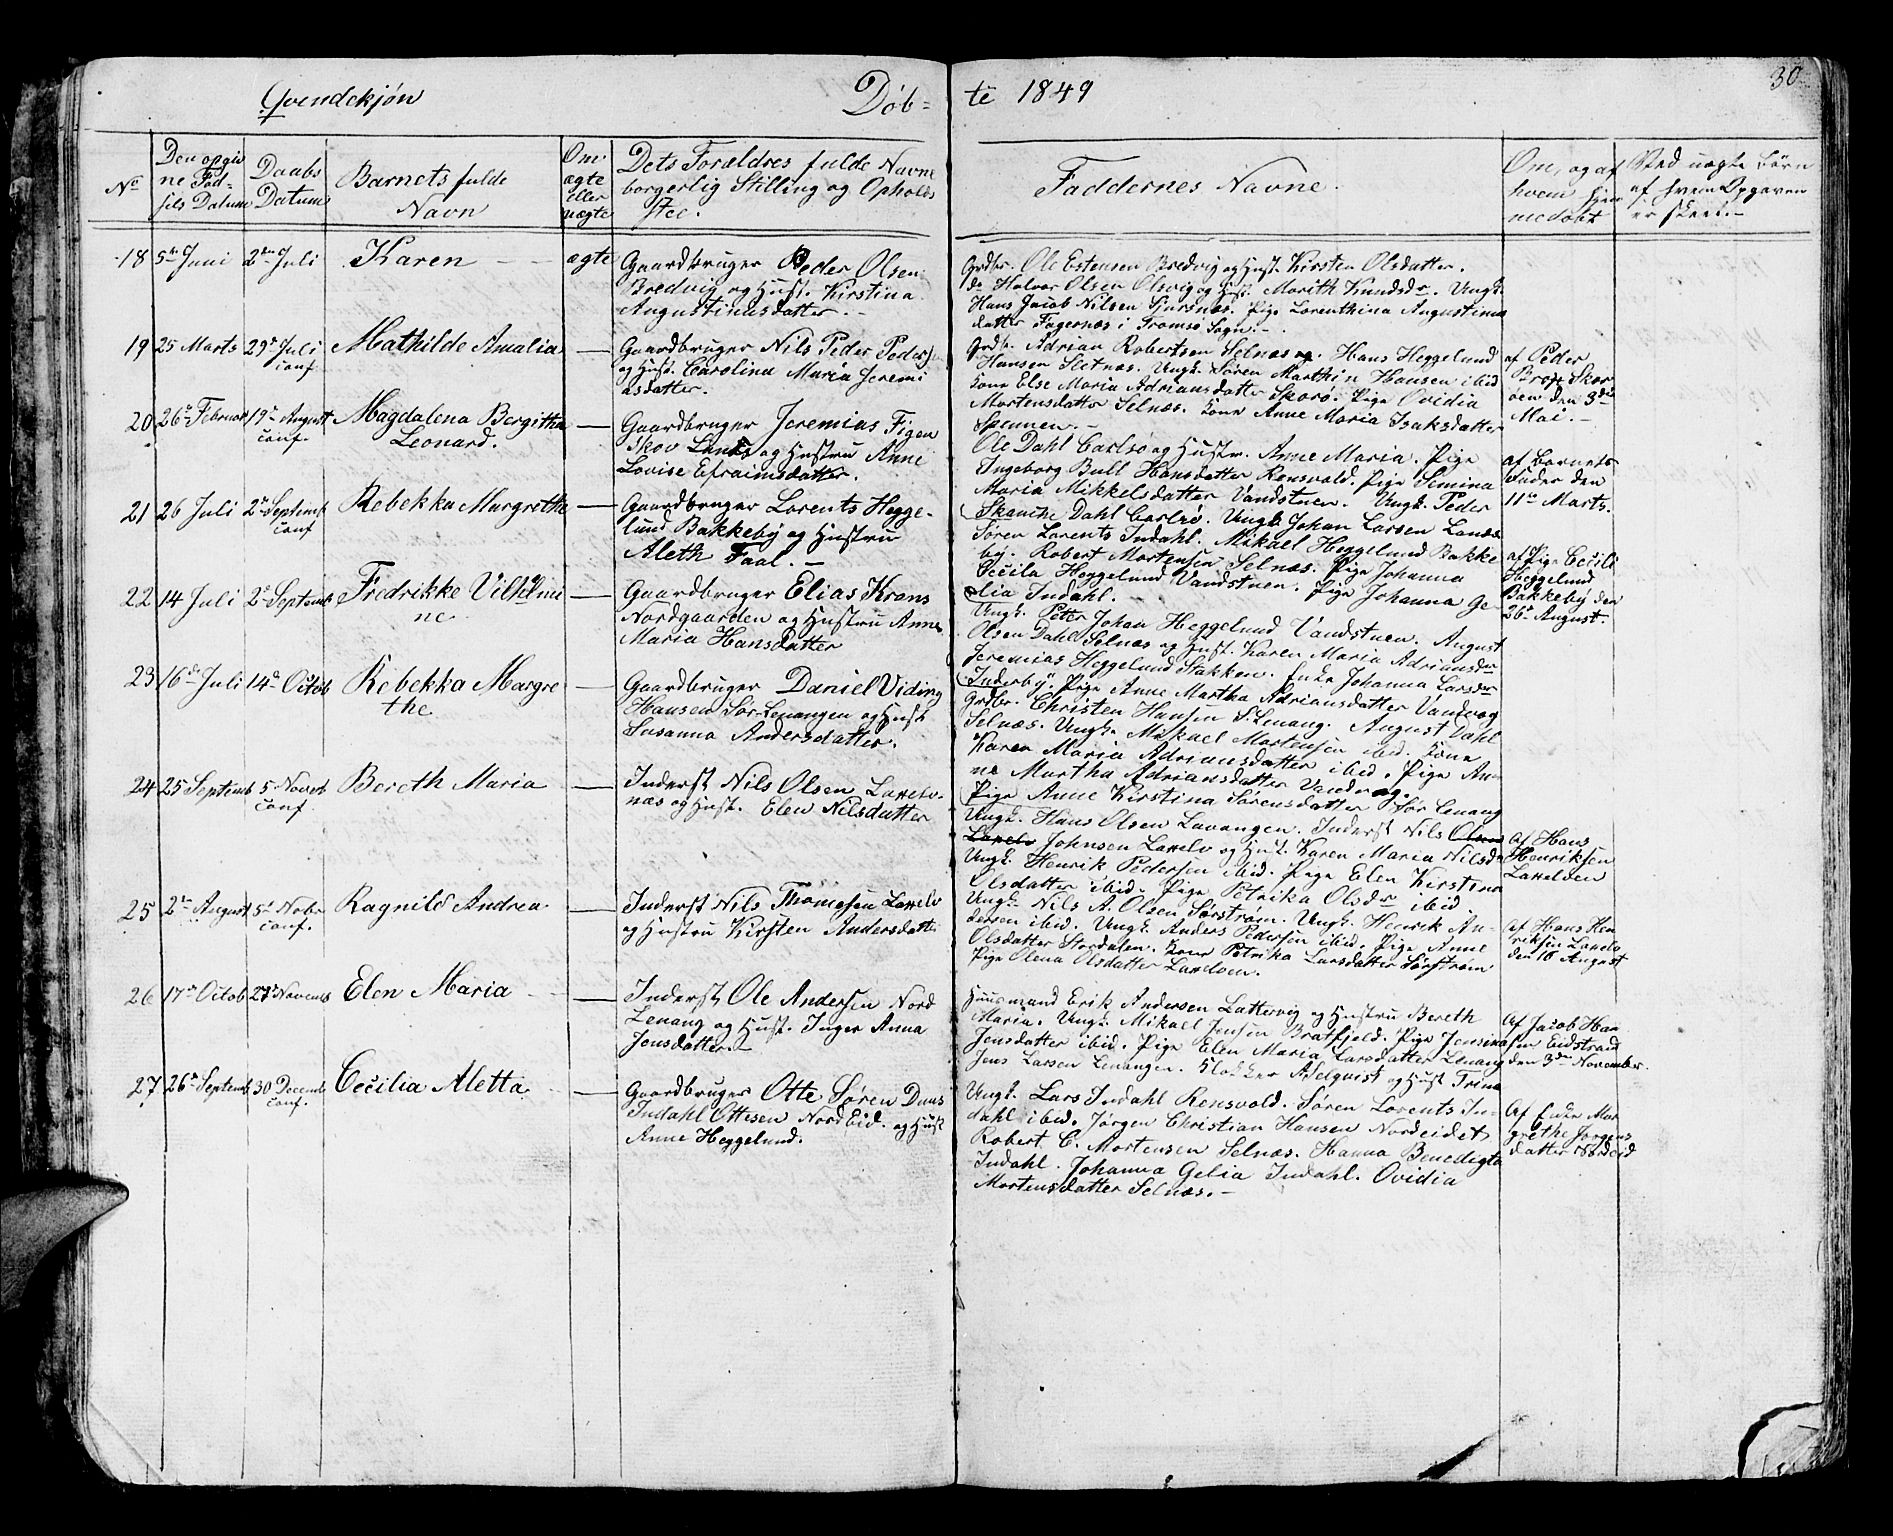 Qvendekjøn Døb= te 1849 30
No
Den opgiv
ne Fød-
sels Datum
Daabs
Datum
Barnets fulde
Navn
Om
ægte
eller
uægte
Dets Forældres fulde Navne
borgerlig Stilling og Opholds
sted.
Faddernes Navne.
Om, og af
hvem hjem
medøbt
Ved uægte Børn
af hvem Opgaven
er skeet.-
18 5te Juni 2den Juli Karen - - ægte
Gaardbruger Peder Olsen
Bredvig og Hust. Kirstina
Augustinusdatter.-
Grdbr. Ole Estensen Bredvig og Hust. Kirsten Olsdatter.
do Halvor Olsen Olsvig og Hust. Marith Knudsdr. Ungk.
Hans Jacob Nilsen Sjursnæs. Pige Lorenthina Augustinus
datter Fagernæs i Tromsø Sogn.-
19 25 Marts 29de Juli conf Mathilde Amalia —
Gaardbruger Nils Peder Peders
og Hust. Carolina Maria Jeremi
asdatter.
Grdb. Adrian Robertsen Selnæs og. Hans Heggelund
Hansen Sletnæs. Ungk. Søren Marthin Hansen ibid
Kone Else Maria Adriansdatter Skorø. Pige Ovidia
Mortensdatter Selnæs. Kone Anne Maria Isaksdatter
Spennen.-
af Peder
Skor
øen den 3die
Mai.-
20 26de Februar 19de August conf. Magdalena Bergitha
Leonard. —
Gaardbruger Jeremias Figen
Skov Lanes og Hustru Anne
Lovise Efraimsdatter.
Ole Dahl Carlsø og Hustru. Anne Maria. Pige
Ingeborg Bull Hansdatter Rensvold. Pige Semina
Maria Mikkelsdatter Vandstuen. Ungk. Peder
Skanche Dahl Carlsø. Ungk Johan Larsen Lanes
af Barnets
Fader den
11te Marts.
21 26 Juli 2den Septemb conf Rebekka Margretha —
Gaardbruger Lorents Hegge-
lund Bakkeby og Hustru
Aleth Faal.-
Søren Lorents Indahl. Mikael Heggelund Bakke
by. Robert Mortensen Selnæs. Pige Johanna
Cecilia Heggelund Vandstuen. Pige Johanna Ge-
lia Indahl.
af Pige Cecili
Heggelund
Bakkeby den
26de August.
22 14 Juli 2de Septemb Fredrikke Vilhelmi
ne. —
Gaardbruger Elias Krans
Nordgaarden og Hustru Anne
Maria Hansdatter
Ungk. Petter Johan Heggelund Vandstuen. August
Olsen Dahl Selnæs og Hust. Karen Maria Adriansdr
Jeremias Heggelund Stakken. Enke Johanna Larsdr
Inderby. Pige Anne Martha Adriansdatter Vandvog
23 16de Juli 14de Octob Rebekka Margre
the. —
Gaardbruger Daniel Viding
Hansen Sør-Lenangen og Hust.
Susanna Andersdatter.
Grdbr. Christen Hansen S.Lenang. August Dahl
Selnæs. Ungk. Mikael Mortensen ibid. Kone
Karen Maria Adriansdatter ibid. Pige An-
ne Martha Adriansdatter Vandvog.
Pige Anne Kirstina Sørensdatter Sør Lenang
24 25 Septemb 5 Novemb conf. Bereth Maria —
Inderst Nils Olsen Laxelv-
næs og Hust. Elen Nilsdatter
Ungk. Hans Olsen Lavangen. Inderst Nils Olsen
Laxelv Johnsen Laxelv og Hust. Karen Maria Nilsdr
Ungk. Henrik Pedersen ibid. Pige Elen Kirstina
Olsdatter ibid. Pige Petrika Olsdr ibid.
Af Hans
Henriksen
Laxelven
25 2den August 5te Nobr conf. Ragnild Andrea. —
Inderst Nils Thomesen Laxelv
og Hustru Kirsten Andersdatter
Ungk. Nils A. Olsen Sørstrøm. Ungk. Henrik An-
dersen ibid. Ungk. Anders Pedersen ibid. Pige Anne
Olsdatter Stordalen. Kone Petrika Larsdatter Sørstrøm
Pige Olena Olsdatter Laxelven.
af Hans Hen
riksen Laxelv
den 16 August
26 17de Octob Novemb Elen Maria - —
Inderst Ole Andersen Nord
Lenang og Hust. Inger Anna
Jonsdatter.-
Huusmand Erik Andersen Lattervig og Hustru Bereth
Maria. Ungk. Mikael Jensen Bratfjeld. Pige Jensina
Jensdatter ibid. Pige Elen Maria Larsdatter Lenang
Jens Larsen Lenangen. Klokker Aselqvist og Hust Trina
Af Jacob Han
sen Eidstrand
den 3den November.
27 26de Septemb 30 Decemb conf. Cecilia Aletta. —
Gaardbruger Otte Søren Duus
Indahl Ottesen Nord Eid. og Hust
Anne Heggelund.
Ungk. Lars Indahl Rensvold. Søren Lorents In-
dahl ibid. Jørgen Christian Hansen Nordeidet
Robert C. Mortensen Selnæs. Hanna Benedigta
Indahl. Johanna Gelia Indahl. Ovidia
Mortensdatter Selnæs.-
Af Enke Mar
grethe Jørgens
datter Nordeid